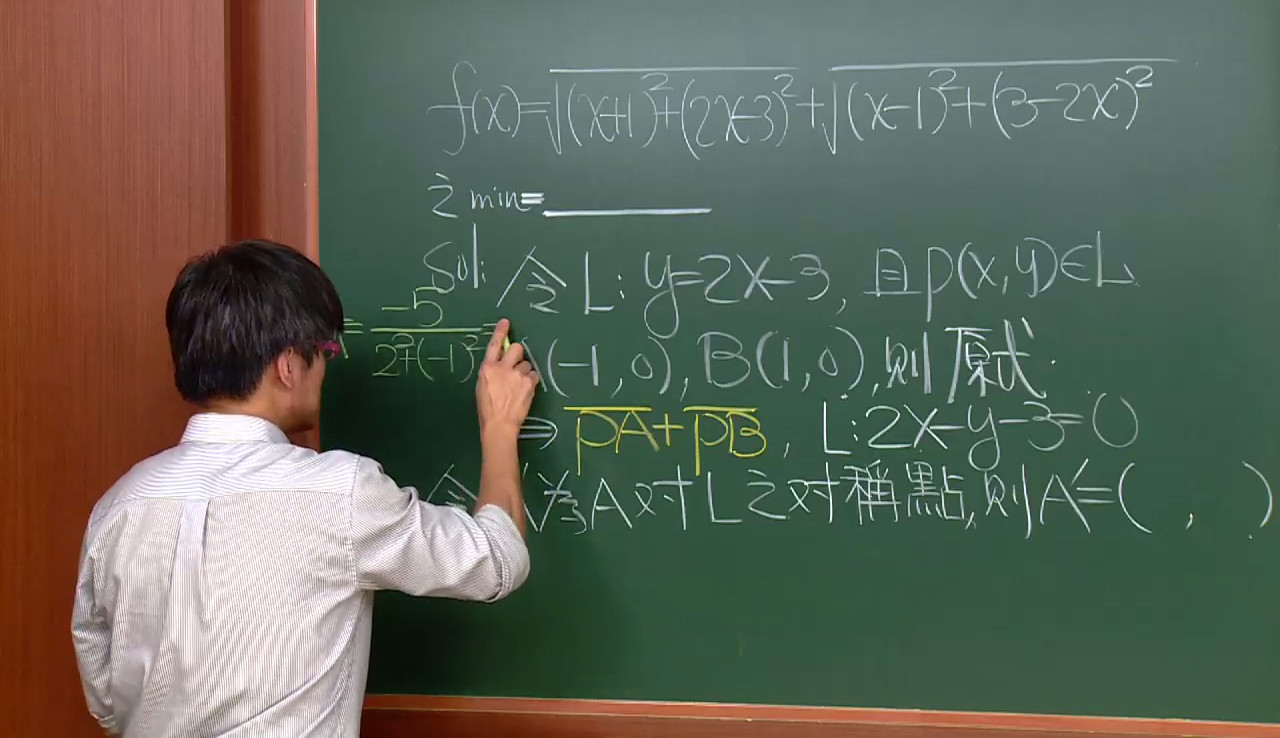 f(x)=√((x+1)²+(2x-3)²)+√((x-1)²+(3-2x)²)
之 min=
Sol: 令 L: y=2x-3, 且 P(x,y)∈L,
= -5/(2²+(-1)²) =
A(-1,0), B(1,0), 則原式
⇒ PA+PB, L:2x-y-3=0
令 A'為A對L之對稱點,則A'=( , ).